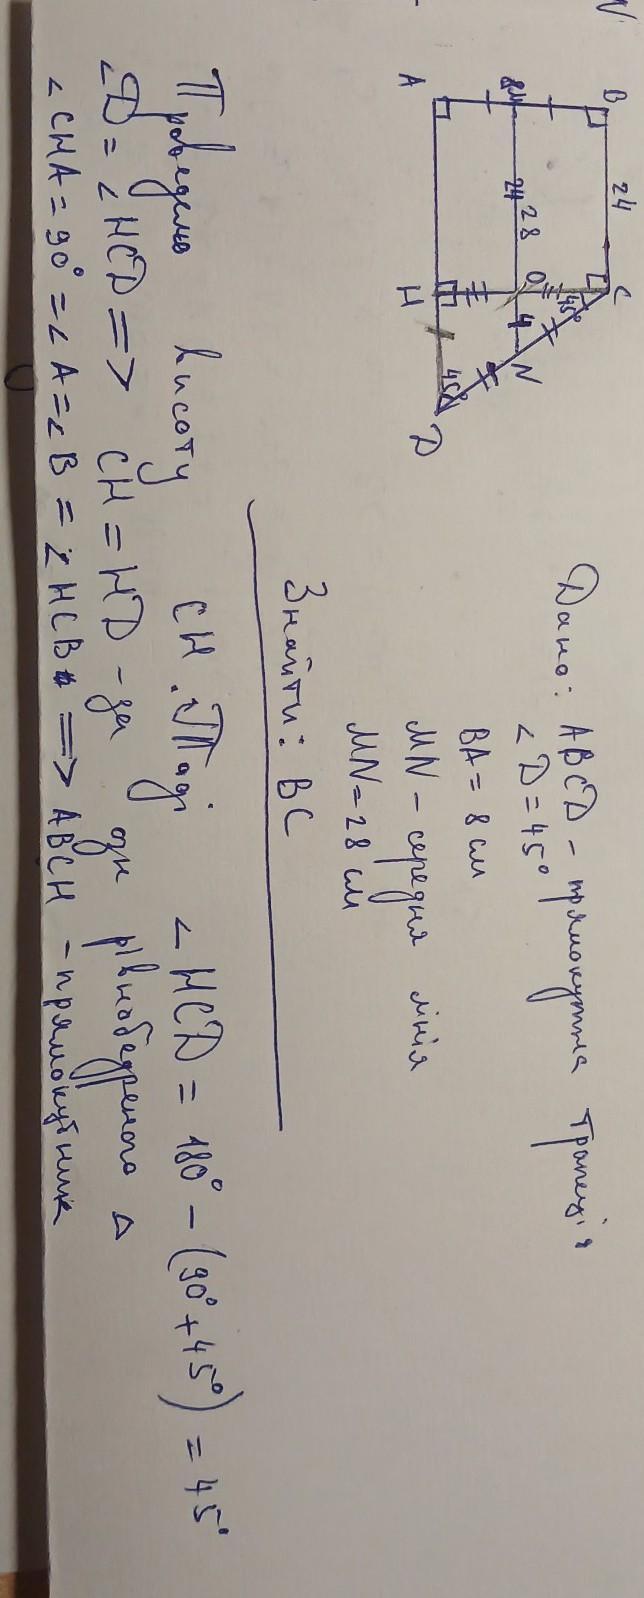 B 24 C
45°
8 M 24 28 O 4 N
45°
A H D
Дано: ABCD - прямокутна трапеція
∠D = 45°
BA = 8 см
MN - середня лінія
MN = 28 см
Знайти: BC
Проведемо висоту CH. Тоді ∠HCD = 180° - (90° + 45°) = 45°
∠D = ∠HCD => CH = HD - за озн рівнобедреного Δ
∠CHA = 90° = ∠A = ∠B = ∠HCB => ABCH - прямокутник